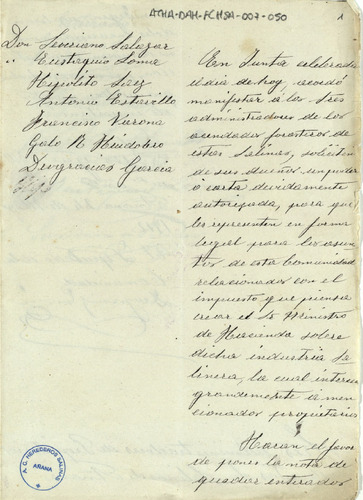 ATHA-DAH-FCHSA-007-050
1
Don Feliciano Salazar
" Eustaquio Loma
Hipólito Saez
Antonio Estavillo
Francisco Varona
Galo R. Huidobro
Deogracias Garcia
En Junta celebrada
el dia de hoy, acordó
manifestar á los Sres
administradores de los
acendados forasteros de
estas Salinas, soliciten
de sus dueños un poder
o carta devidamente
autorizada, para que
les representen en forma
legal para los asun
tos de esta Comunidad
relacionados con el
impuesto que piensa
crear el Sr Ministro
de Hacienda sobre
dicha industria Sa
linera, la cual interesa
grandemente a men
cionados propietarios
Haran el favor
de poner la nota de
quedar enterados
A. C. HEREDEROS SALINAS
AÑANA